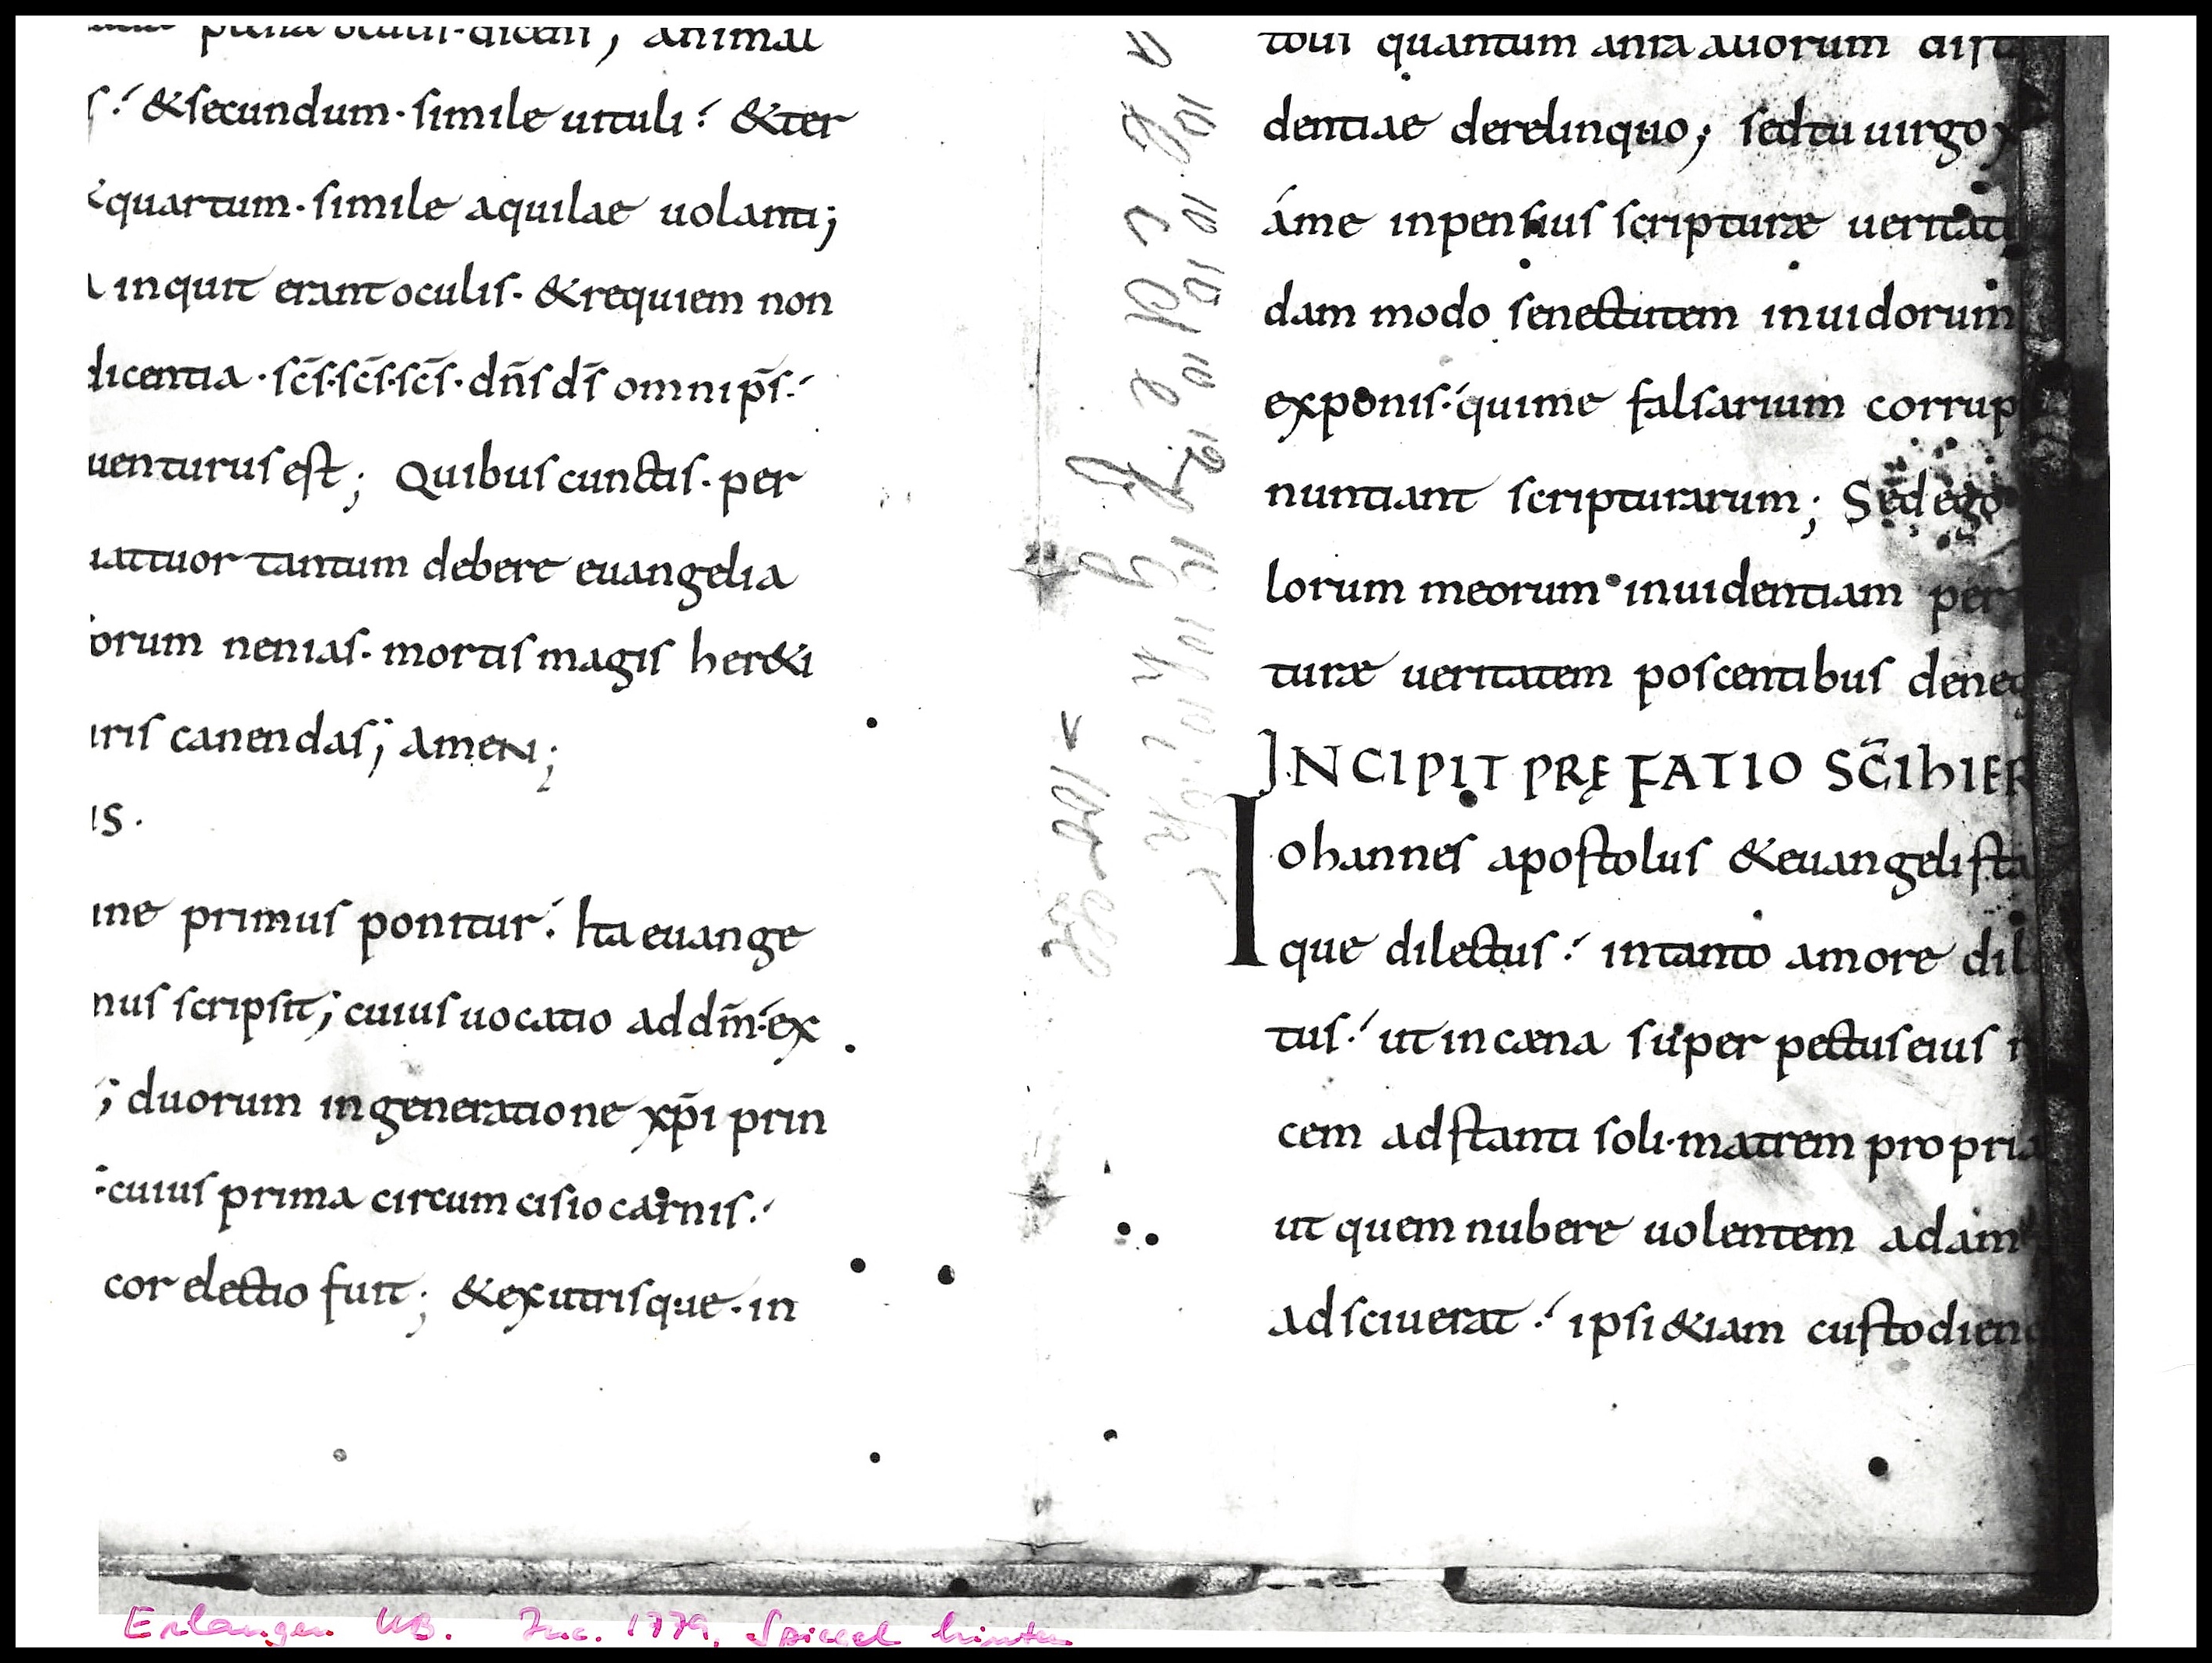 plena oculis·dicens; animal
s:́ &secundum·simile uituli:́ &ter
&quartum·simile aquilae uolanti;
inquit erant oculis·&requiem non
dicentia·sc̄s·sc̄s·sc̄s·dn̄s ds̄ omnip̄s:́
uenturus est; Quibus cunctis·per
uattuor tantum debere euangelia
orum nenias·mortis magis her&i
uris canendas; amen;
is·
ine primus ponitur:́ Ita euange
mus scripsit; cuius uocatio ad dm̄:́ex
; duorum in generatione xp̄i prin
:cuius prima circumcisio carnis:́
cor electio fuit; &exutrisque·in
quantum auorum dist
dentiae derelinquo; sed tu uirgo x
áme inpensius scripturæ ueritati
dam modo senectutem inuidorum
exponis:́quime falsarium corrup
nuntiant scripturarum; Sed ego
lorum meorum inuidentiam per
turæ ueritatem poscentibus deneg
INCIPIT PRĘFATIO SC̄I hIER
Iohannes apostolus &euangelista
que dilectus:́ intanto amore dil
tus:́ ut incæna super pectus eius r
cem adstanti soli·matrem propria
ut quem nubere uolentem ad am
adsciuerat:́ ipsi &iam custodien
Erlangen UB. Inc. 1779, Spiegel hinten